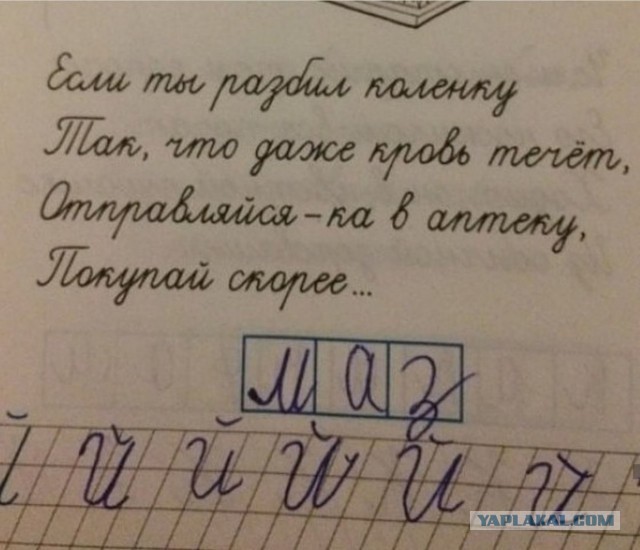 Если ты разбил коленку
Так, что даже кровь течёт,
Отправляйся-ка в аптеку,
Покупай скорее...
маз
й й й й й й
YAPLAKAL.COM